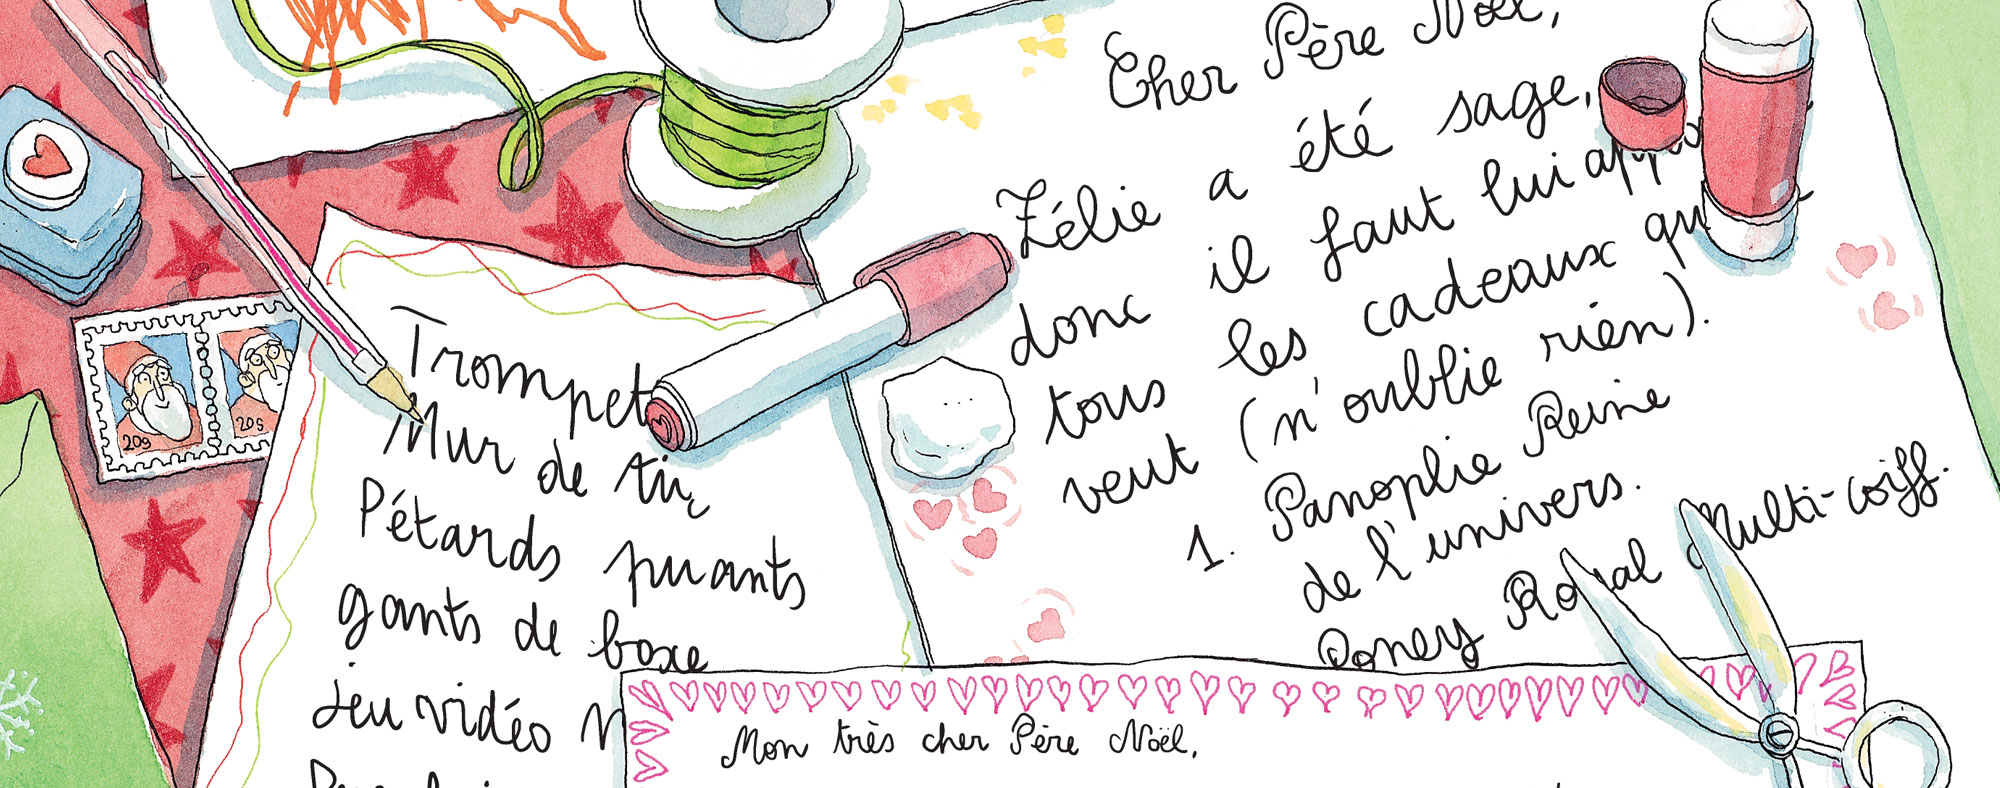 Cher Père Noël,
Zélie a été sage,
donc il faut lui
tous les cadeaux
veut (n'oublie rien).
1. Panoplie Reine
de l'univers.
Poney Royal Multi-coiff.
Mur de tir
Pétards puants
gants de boxe
jeu vidéo
Mon très cher Père Noël,
20g
20g